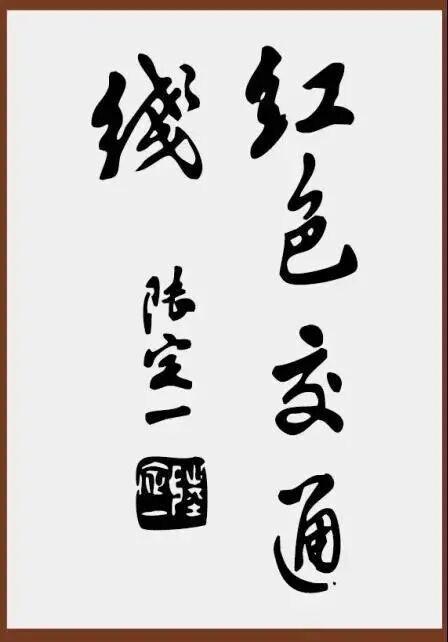 红色交通
綫
陆定一
陸定一